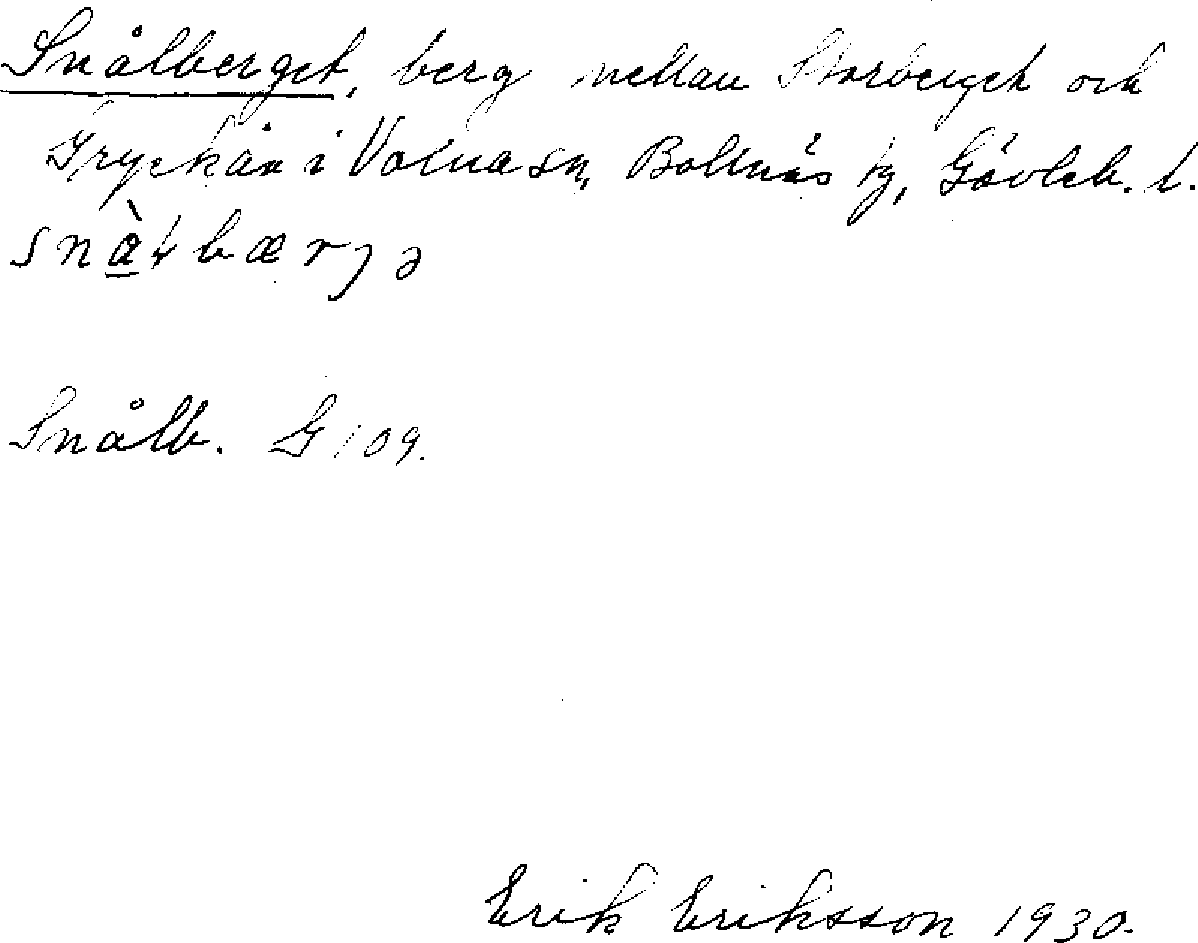 Snålberget, berg mellan Storberget och
Gryckån i Voxna sn, Bollnäs tg, Gävleb. l.
snàɫbærjə
Snålb. G 109.
Erik Eriksson 1930.